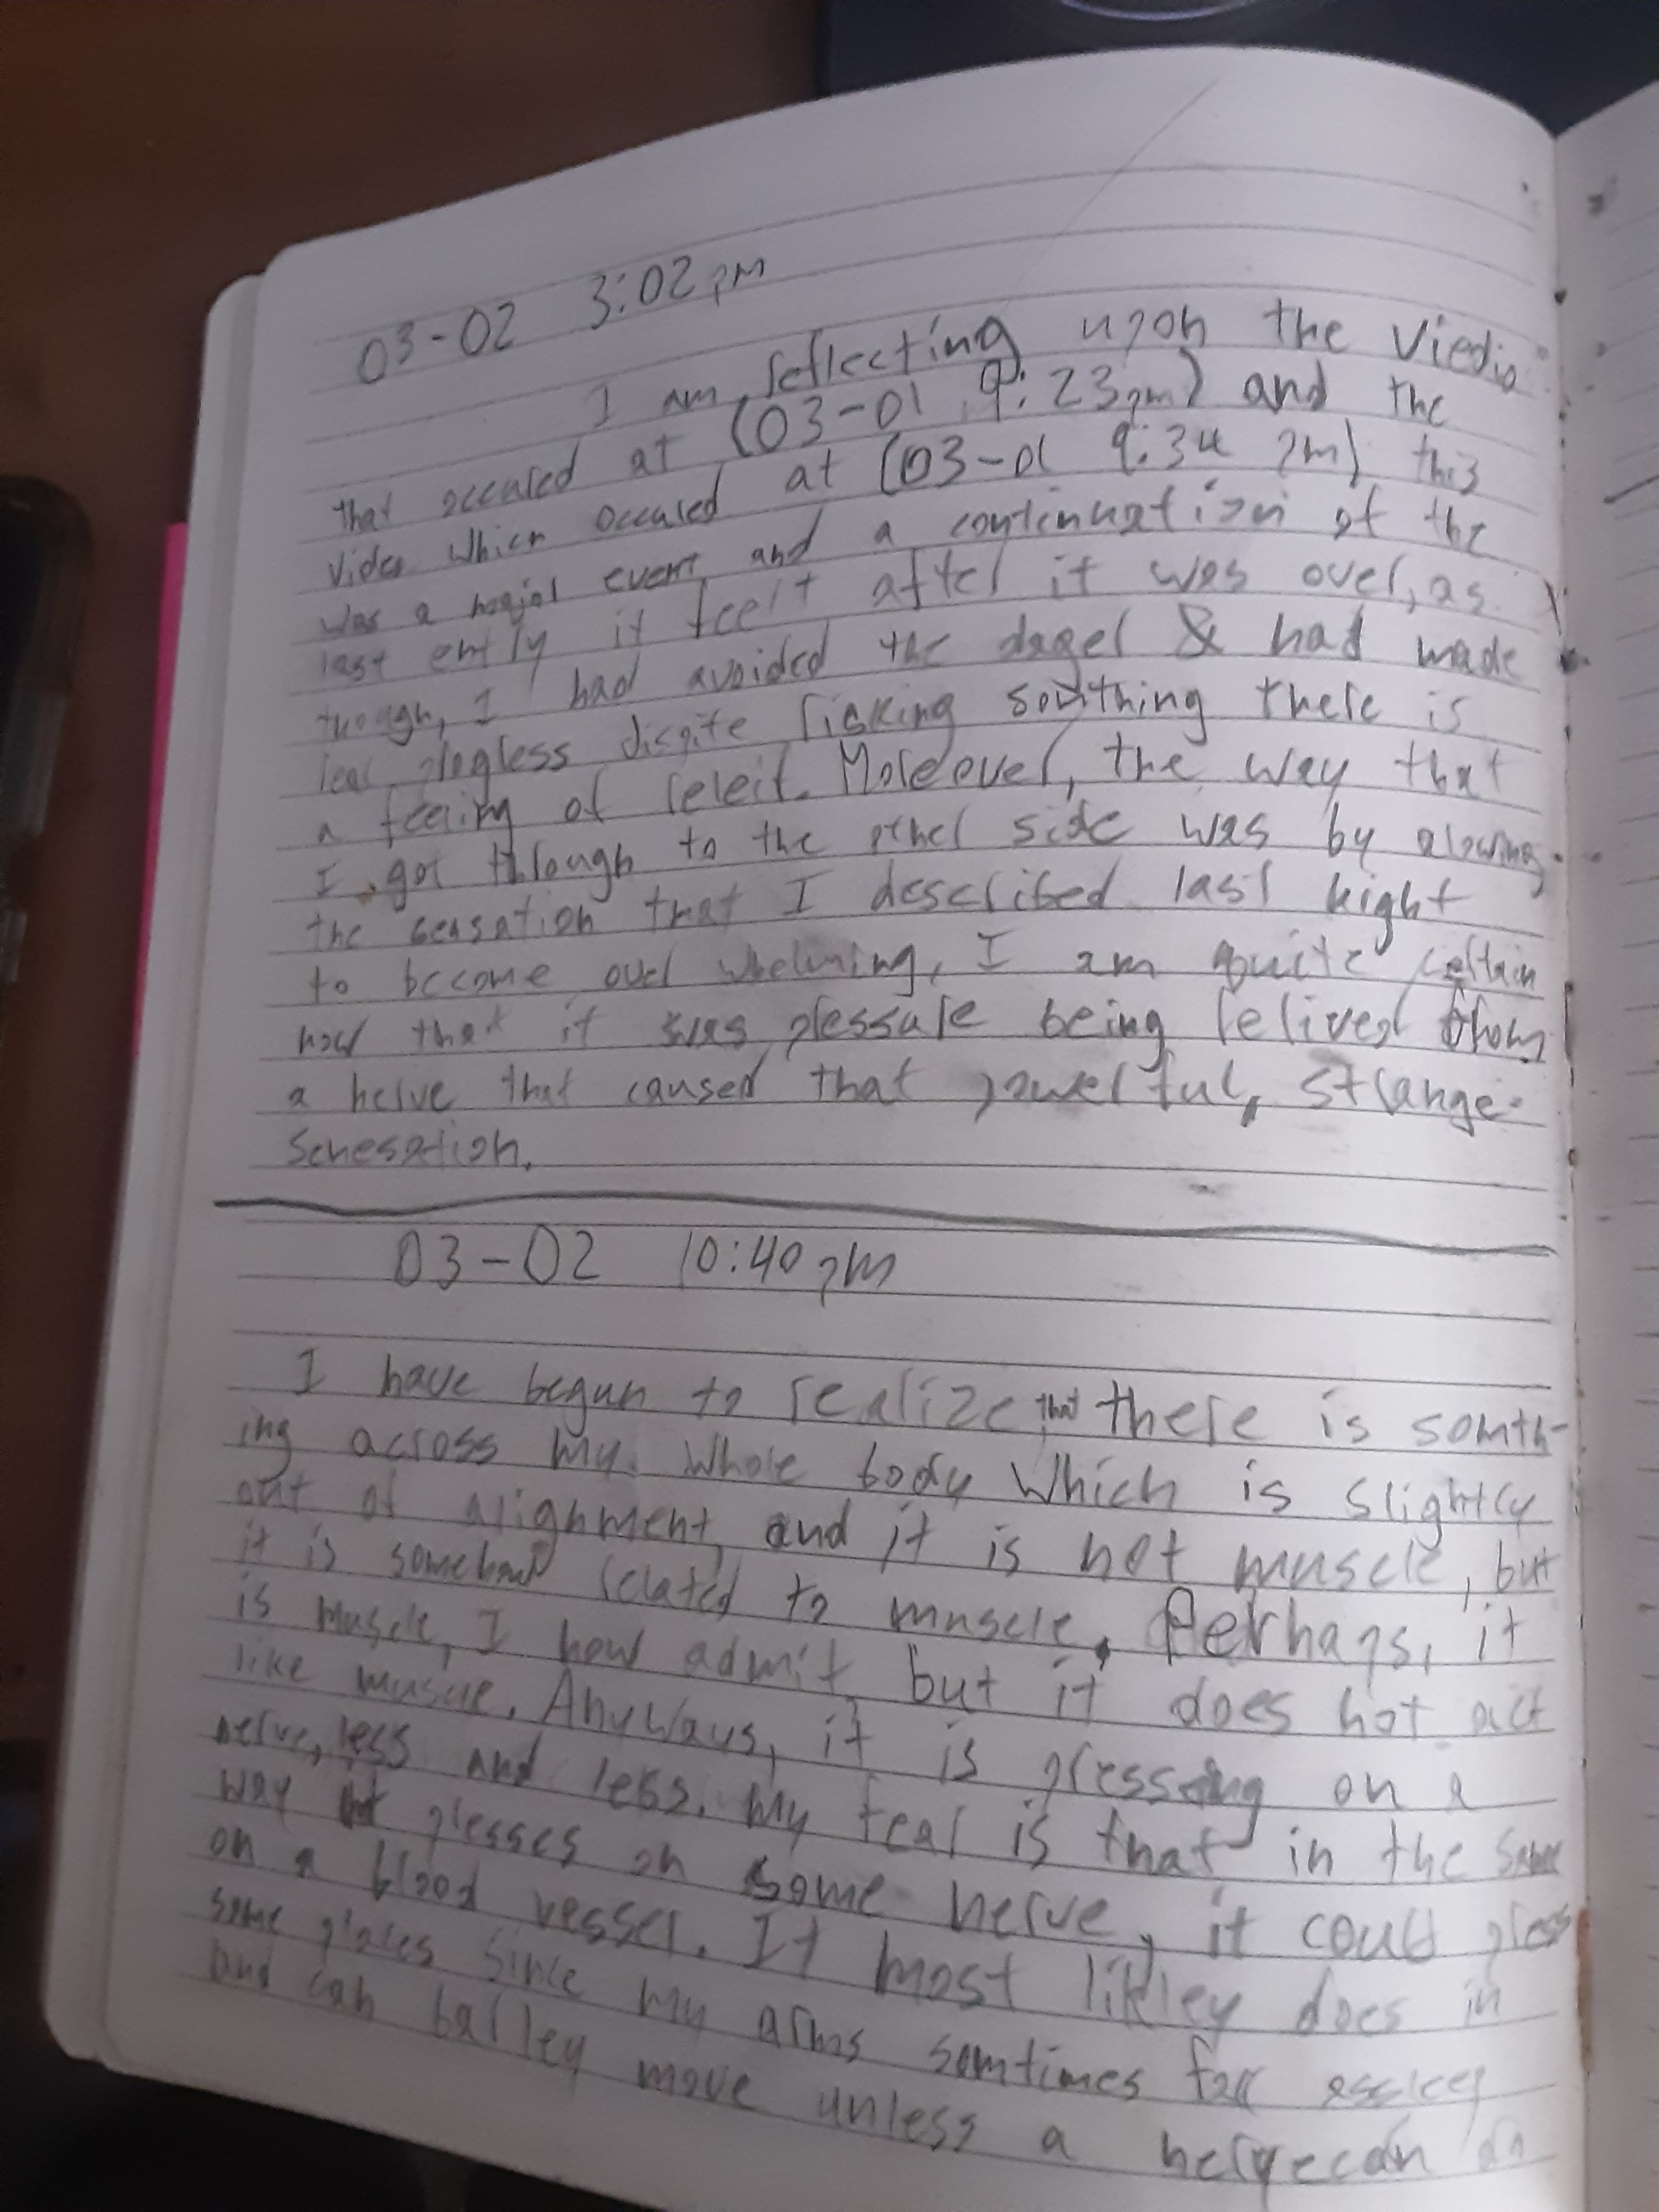 03-02 3:02 pm
I am reflecting upon the Viedio
that occured at (03-01 9:23pm) and the
video which occured at (03-01 9:34 pm) this
was a major event and a continuation of the
last entry it feelt after it was over, as
though, I had avoided the dager & had made
real progress dispite risking somthing there is
a feeling of releif. Moreover, the way that
I got through to the other side was by alowing
the sensation that I described last night
to become over whelming, I am quite certain
now that it was pressure being relived from
a nerve that caused that powerful, strange
Senesation.
03-02 10:40 pm
I have begun to realize that there is somth-
ing across my whole body which is slightly
out of alignment and it is not muscle, but
it is somehow related to muscle. Perhaps, it
is muscle, I now admit but it does not act
like muscle. Anyways, it is pressing on a
nerve, less and less. My fear is that in the same
way it presses on some nerve, it could press
on a blood vessel. It most likley does in
some places since my arms somtimes fall
and can barley move unless a nerve can do